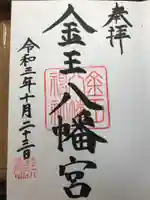 奉拝
金王八幡宮
令和三年十月二十三日